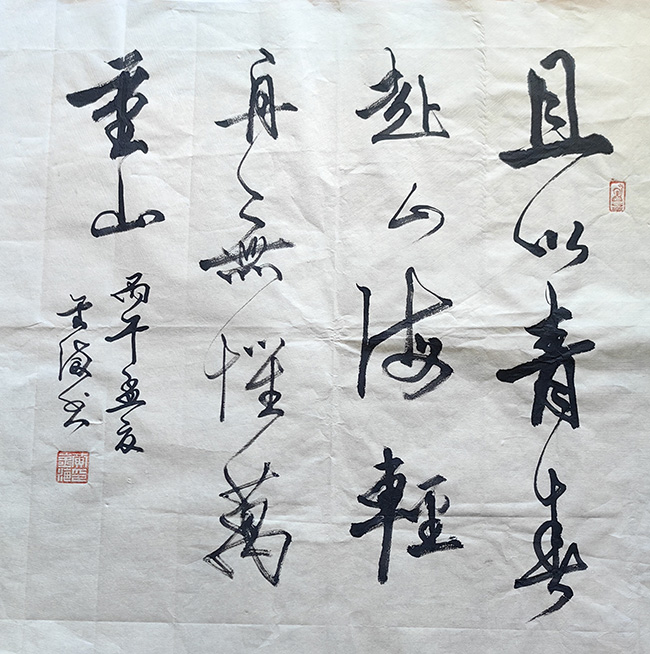 且以青春
赴山海輕
舟無懼萬
重山
丙午孟夏
海书